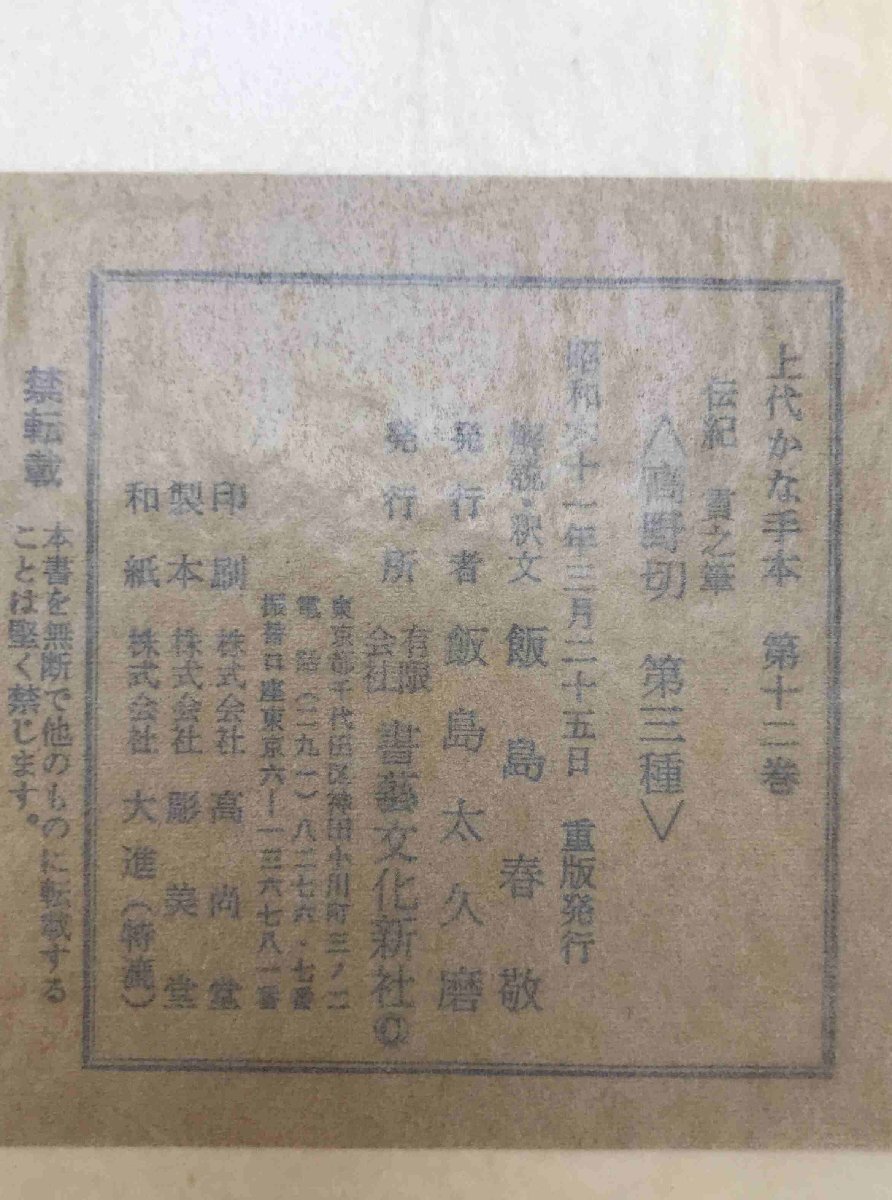 上代かな手本　第十二巻
伝紀　貫之筆
＜高野切　第三種＞
昭和六十一年三月二十五日　重版発行
解説・釈文　飯島春敬
発行者　飯島太久磨
発行所　有限会社　書藝文化新社©
東京都千代田区神田小川町三ノ二
電話（二九一）八二七六・七番
振替口座東京六ー一三六七八一番
印刷　株式会社　高尚堂
製本　株式会社　彫美堂
和紙　株式会社　大進（特漉）
禁転載　本書を無断で他のものに転載する
ことは堅く禁じます。